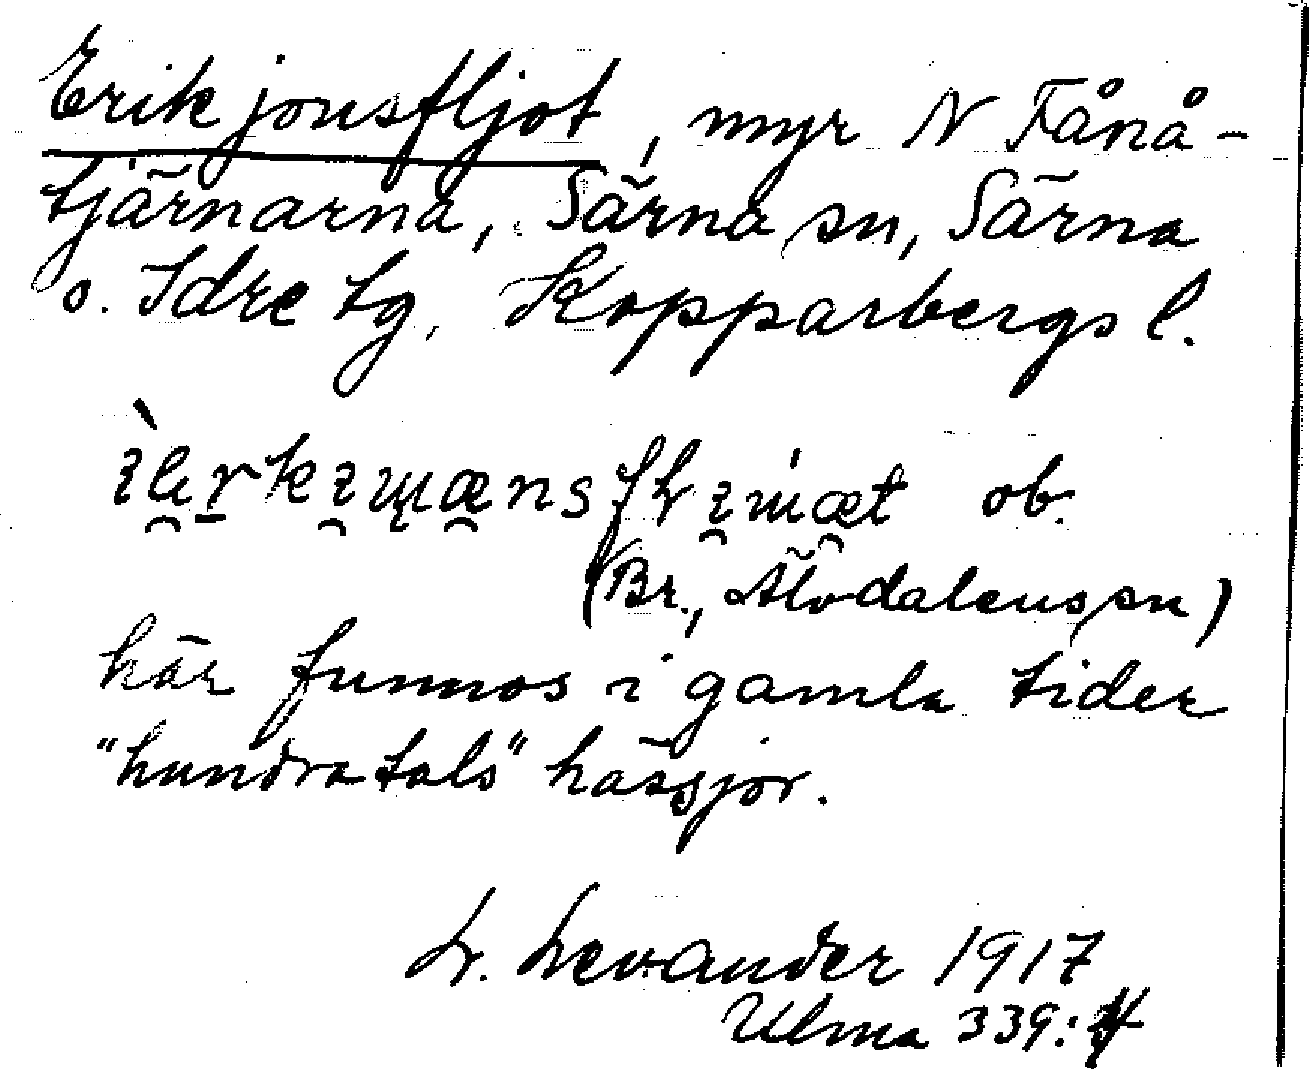 Erikjonsfljot, myr N Fånå-
tjärnarna, Särna sn, Särna
o. Idre tg, Kopparbergs l.
ob.
(Br., Älvdalens sn)
här funnos i gamla tider
"hundratals" hässjor.
L. Levander 1917
Ulma 339: